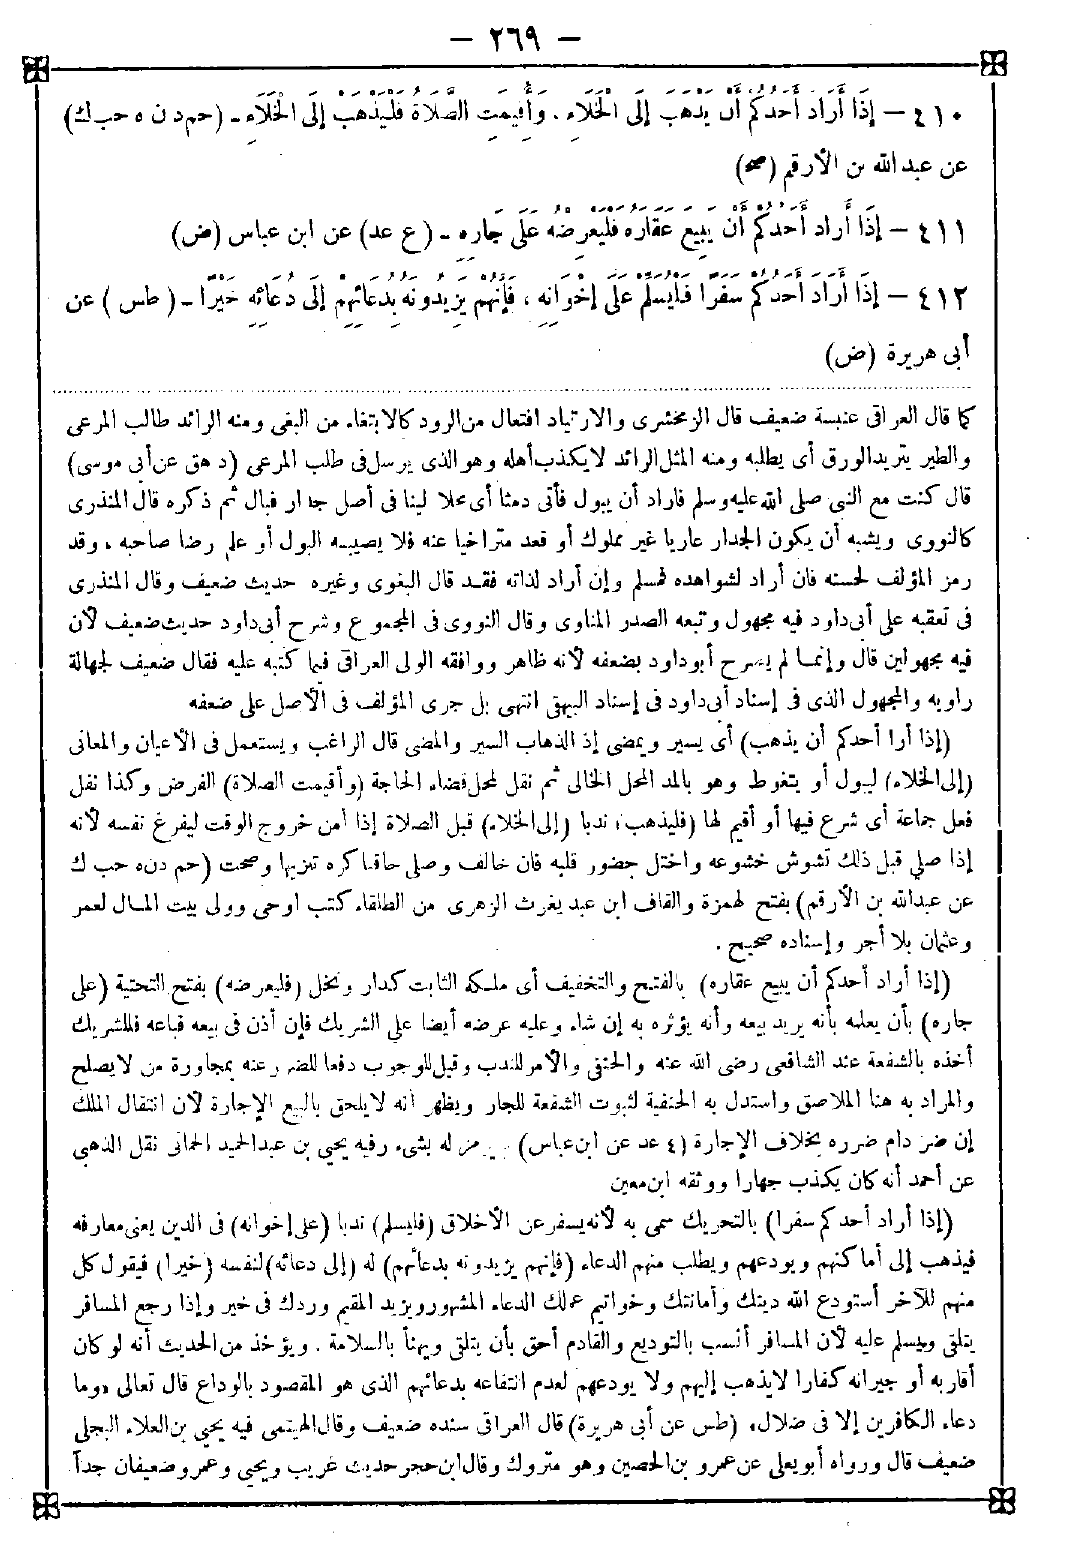 — ٢٦٩ —
٤١٠ — إِذَا أَرَادَ أَحَدُكُمْ أَنْ يَذْهَبَ إِلَى الْخَلَاءِ، وَأُقِيمَتِ الصَّلَاةُ فَلْيَذْهَبْ إِلَى الْخَلَاءِ - (حم د ن ه حب ك)
عن عبد الله بن الأرقم (صح)
٤١١ — إِذَا أَرَادَ أَحَدُكُمْ أَنْ يَبِيعَ عَقَارَهُ فَلْيَعْرِضْهُ عَلَى جَارِهِ - (ع عد) عن ابن عباس (ض)
٤١٢ — إِذَا أَرَادَ أَحَدُكُمْ سَفَرًا فَلْيُسَلِّمْ عَلَى إِخْوَانِهِ، فَإِنَّهُمْ يَزِيدُونَهُ بِدُعَائِهِمْ إِلَى دُعَائِهِ خَيْرًا - (طس) عن
أبي هريرة (ض)
كما قال العراقى عنبسة ضعيف قال الزمخشرى والارتياد افتعال من الرود كالابتغاء من البغى ومنه الرائد طالب المرعى
والطير يتريد الورق أى يطلبه ومنه المثل الرائد لا يكذب أهله وهو الذى يرسل فى طلب المرعى (د هق عن أبى موسى)
قال كنت مع النبى صلى الله عليه وسلم فاراد أن يبول فأتى دمثا أى محلا لينا فى أصل جدار فبال ثم ذكره قال المنذرى
كالنووى ويشبه أن يكون الجدار عاريا غير مملوك أو قعد متراخيا عنه فلا يصيبه البول أو علم رضا صاحبه ، وقد
رمز المؤلف لحسنه فان أراد لشواهده فمسلم وإن أراد لذاته فقد قال البغوى وغيره حديث ضعيف وقال المنذرى
فى تعقبه على أبى داود فيه مجهول وتبعه الصدر المناوى وقال النووى فى المجموع وشرح أبى داود حديث ضعيف لأن
فيه مجهولين قال وإنما لم يصرح أبو داود بضعفه لأنه ظاهر ووافقه الولى العراقى فيما كتبه عليه فقال ضعيف لجهالة
راويه والمجهول الذى فى إسناد أبى داود فى إسناد البيهقى انتهى بل جرى المؤلف فى الأصل على ضعفه
(إذا أرا أحدكم أن يذهب) أى يسير ويمضى إذ الذهاب السير والمضى قال الراغب ويستعمل فى الأعيان والمعانى
(إلى الخلاء) ليبول أو يتغوط وهو بالمد المحل الخالى ثم نقل لمحل قضاء الحاجة (وأقيمت الصلاة) الفرض وكذا نقل
فعل جماعة أى شرع فيها أو أقيم لها (فليذهب) ندبا (إلى الخلاء) قبل الصلاة إذا أمن خروج الوقت ليفرغ نفسه لأنه
إذا صلى قبل ذلك تشوش خشوعه واختل حضور قلبه فان خالف وصلى حاقنا كره تنزيها وصحت (حم دن ه حب ك
عن عبد الله بن الأرقم) بفتح لهمزة والقاف ابن عبد يغوث الزهرى من الطلقاء كتب الوحى وولى بيت المال لعمر
وعثمان بلا أجر وإسناده صحيح .
(إذا أراد أحدكم أن يبيع عقاره) بالفتح والتخفيف أى ملكه الثابت كدار ونخل (فليعرضه) بفتح التحتية (على
جاره) بأن يعلمه بأنه يريد بيعه وأنه يؤثره به إن شاء وعليه عرضه أيضا على الشريك فإن أذن فى بيعه فباعه فللشريك
أخذه بالشفعة عند الشافعى رضى الله عنه والحنفى والأمر للندب وقيل للوجوب دفعا للضرر عنه بمجاورة من لا يصلح
والمراد به هنا الملاصق واستدل به الحنفية لثبوت الشفعة للجار ويظهر أنه لا يلحق بالبيع الإجارة لأن انتقال الملك
إن ضر دام ضرره بخلاف الإجارة (٤ عد عن ابن عباس) رمز له بشىء وفيه يحيى بن عبد الحميد الحمانى نقل الذهبى
عن أحمد أنه كان يكذب جهارا ووثقه ابن معين
(إذا أراد أحدكم سفرا) بالتحريك سمى به لأنه يسفر عن الأخلاق (فليسلم) ندبا (على إخوانه) فى الدين يعنى معارفه
فيذهب إلى أماكنهم ويودعهم ويطلب منهم الدعاء (فإنهم يزيدونه بدعائهم) له (إلى دعائه) لنفسه (خيرا) فيقول كل
منهم للآخر أستودع الله دينك وأمانتك وخواتيم عملك الدعاء المشهور ويزيد المقيم وردك فى خير وإذا رجع المسافر
يتلقى ويسلم عليه لأن المسافر أنسب بالتوديع والقادم أحق بأن يتلقى ويهنأ بالسلامة . ويؤخذ من الحديث أنه لو كان
أقاربه أو جيرانه كفارا لا يذهب إليهم ولا يودعهم لعدم انتفاعه بدعائهم الذى هو المقصود بالوداع قال تعالى «وما
دعاء الكافرين إلا فى ضلال» (طس عن أبى هريرة) قال العراقى سنده ضعيف وقال الهيتمى فيه يحيى بن العلاء البجلى
ضعيف قال ورواه أبو يعلى عن عمرو بن الحصين وهو متروك وقال ابن حجر حديث غريب ويحيى وعمرو ضعيفان جداً